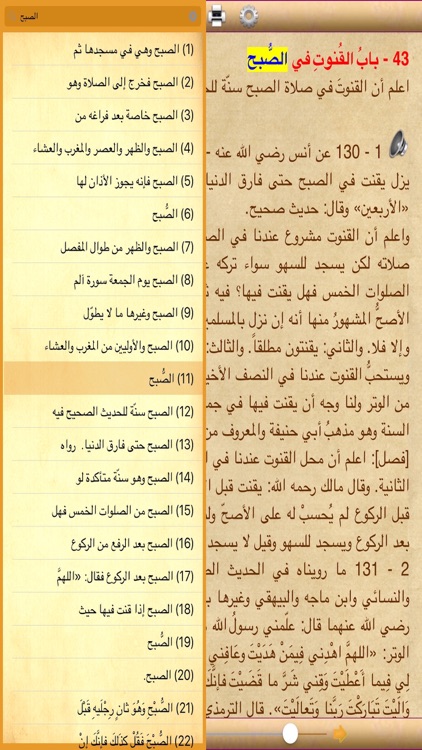 الصبح
(1) الصبح وهي في مسجدها ثم
(2) الصبح فخرج إلى الصلاة وهو
(3) الصبح خاصة بعد فراغه من
(4) الصبح والظهر والعصر والمغرب والعشاء
(5) الصبح فإنه يجوز الأذان لها
(6) الصُّبح
(7) الصبح والظهر من طوال المفصل
(8) الصبح يوم الجمعة سورة ألم
(9) الصبح وغيرها ما لا يطوِّل
(10) الصبح والأوليين من المغرب والعشاء
(11) الصُّبح
(12) الصبح سنّة للحديث الصحيح فيه
(13) الصبح حتى فارق الدنيا. رواه
(14) الصبح وهو سنّة متأكدة لو
(15) الصبح من الصلوات الخمس فهل
(16) الصبح بعد الرفع من الركوع
(17) الصبح بعد الركوع فقال: «اللهمَّ
(18) الصبح إذا قنت فيها حيث
(19) الصُّبح
(20) الصبح.
(21) الصُّبْحِ وَهُوَ ثانٍ رِجْلَيهِ قَبْلَ
(22) الصُّبْحَ فَقُلْ كذلكَ فإنَّكَ إنْ
43 - بابُ القُنوتِ في الصُّبح
اعلم أن القنوتَ في صلاة الصبح سنّة
1 - 130 عن أنس رضي الله عنه -
يزل يقنت في الصبح حتى فارق الدنيا
«الأربعين» وقال: حديث صحيح.
واعلم أن القنوت مشروع عندنا في
صلاته لكن يسجد للسهو سواء تركه
الصلوات الخمس فهل يقنت فيها؟ فيه
الأصحُّ المشهورُ منها أنه إن نزل بالمسلمي
وإلا فلا. والثاني: يقنتون مطلقاً. والثالث:
ويستحبُّ القنوت عندنا في النصف
من الوتر ولنا وجه أن يقنت فيها في
السنة وهو مذهبُ أبي حنيفة والمعروف
[فصل]: اعلم أن محل القنوت عندنا في
الثانية. وقال مالك رحمه الله: يقنت قبل
قبل الركوع لم يُحسبْ له على الأصحّ
بعد الركوع ويسجد للسهو وقيل لا يسجد
2 - 131 ما رويناه في الحديث
والنسائي وابن ماجه والبيهقي وغيرها
رضي الله عنهما قال: علّمني رسولُ الله
الوتر: «اللهمَّ اهْدِني فِيمَنْ هَدَيْتَ وعَافِني
لي فِيما أعْطَيْتَ وَقِني شَرَّ ما قَضَيْتَ
وَالَيْتَ تَبارَكْتَ رَبَّنا وَتَعالَيْتَ». قال الترمذي